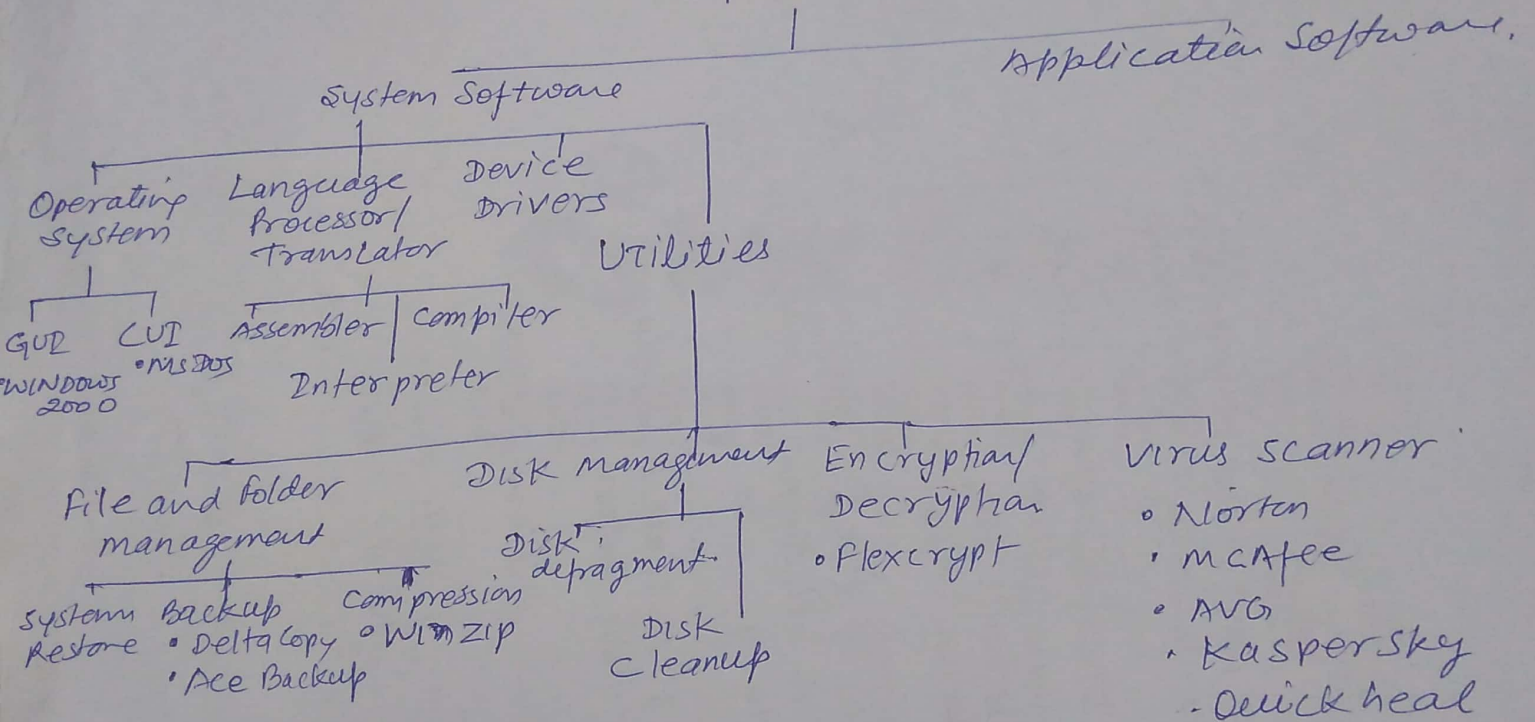 Application Software.
System Software
Operating
System
Language
Processor/
Translator
Device
Drivers
Utilities
GUI
• WINDOWS
2000
CUI
• MS DOS
Assembler
Compiler
Interpreter
File and folder
management
Disk Management
Encryption/
Decryption
• Flexcrypt
Virus scanner
• Norton
• McAfee
• AVG
• Kaspersky
- Quick heal
System
Restore
Backup
• Delta Copy
• Ace Backup
Compression
• Win zip
Disk
defragment
Disk
Cleanup